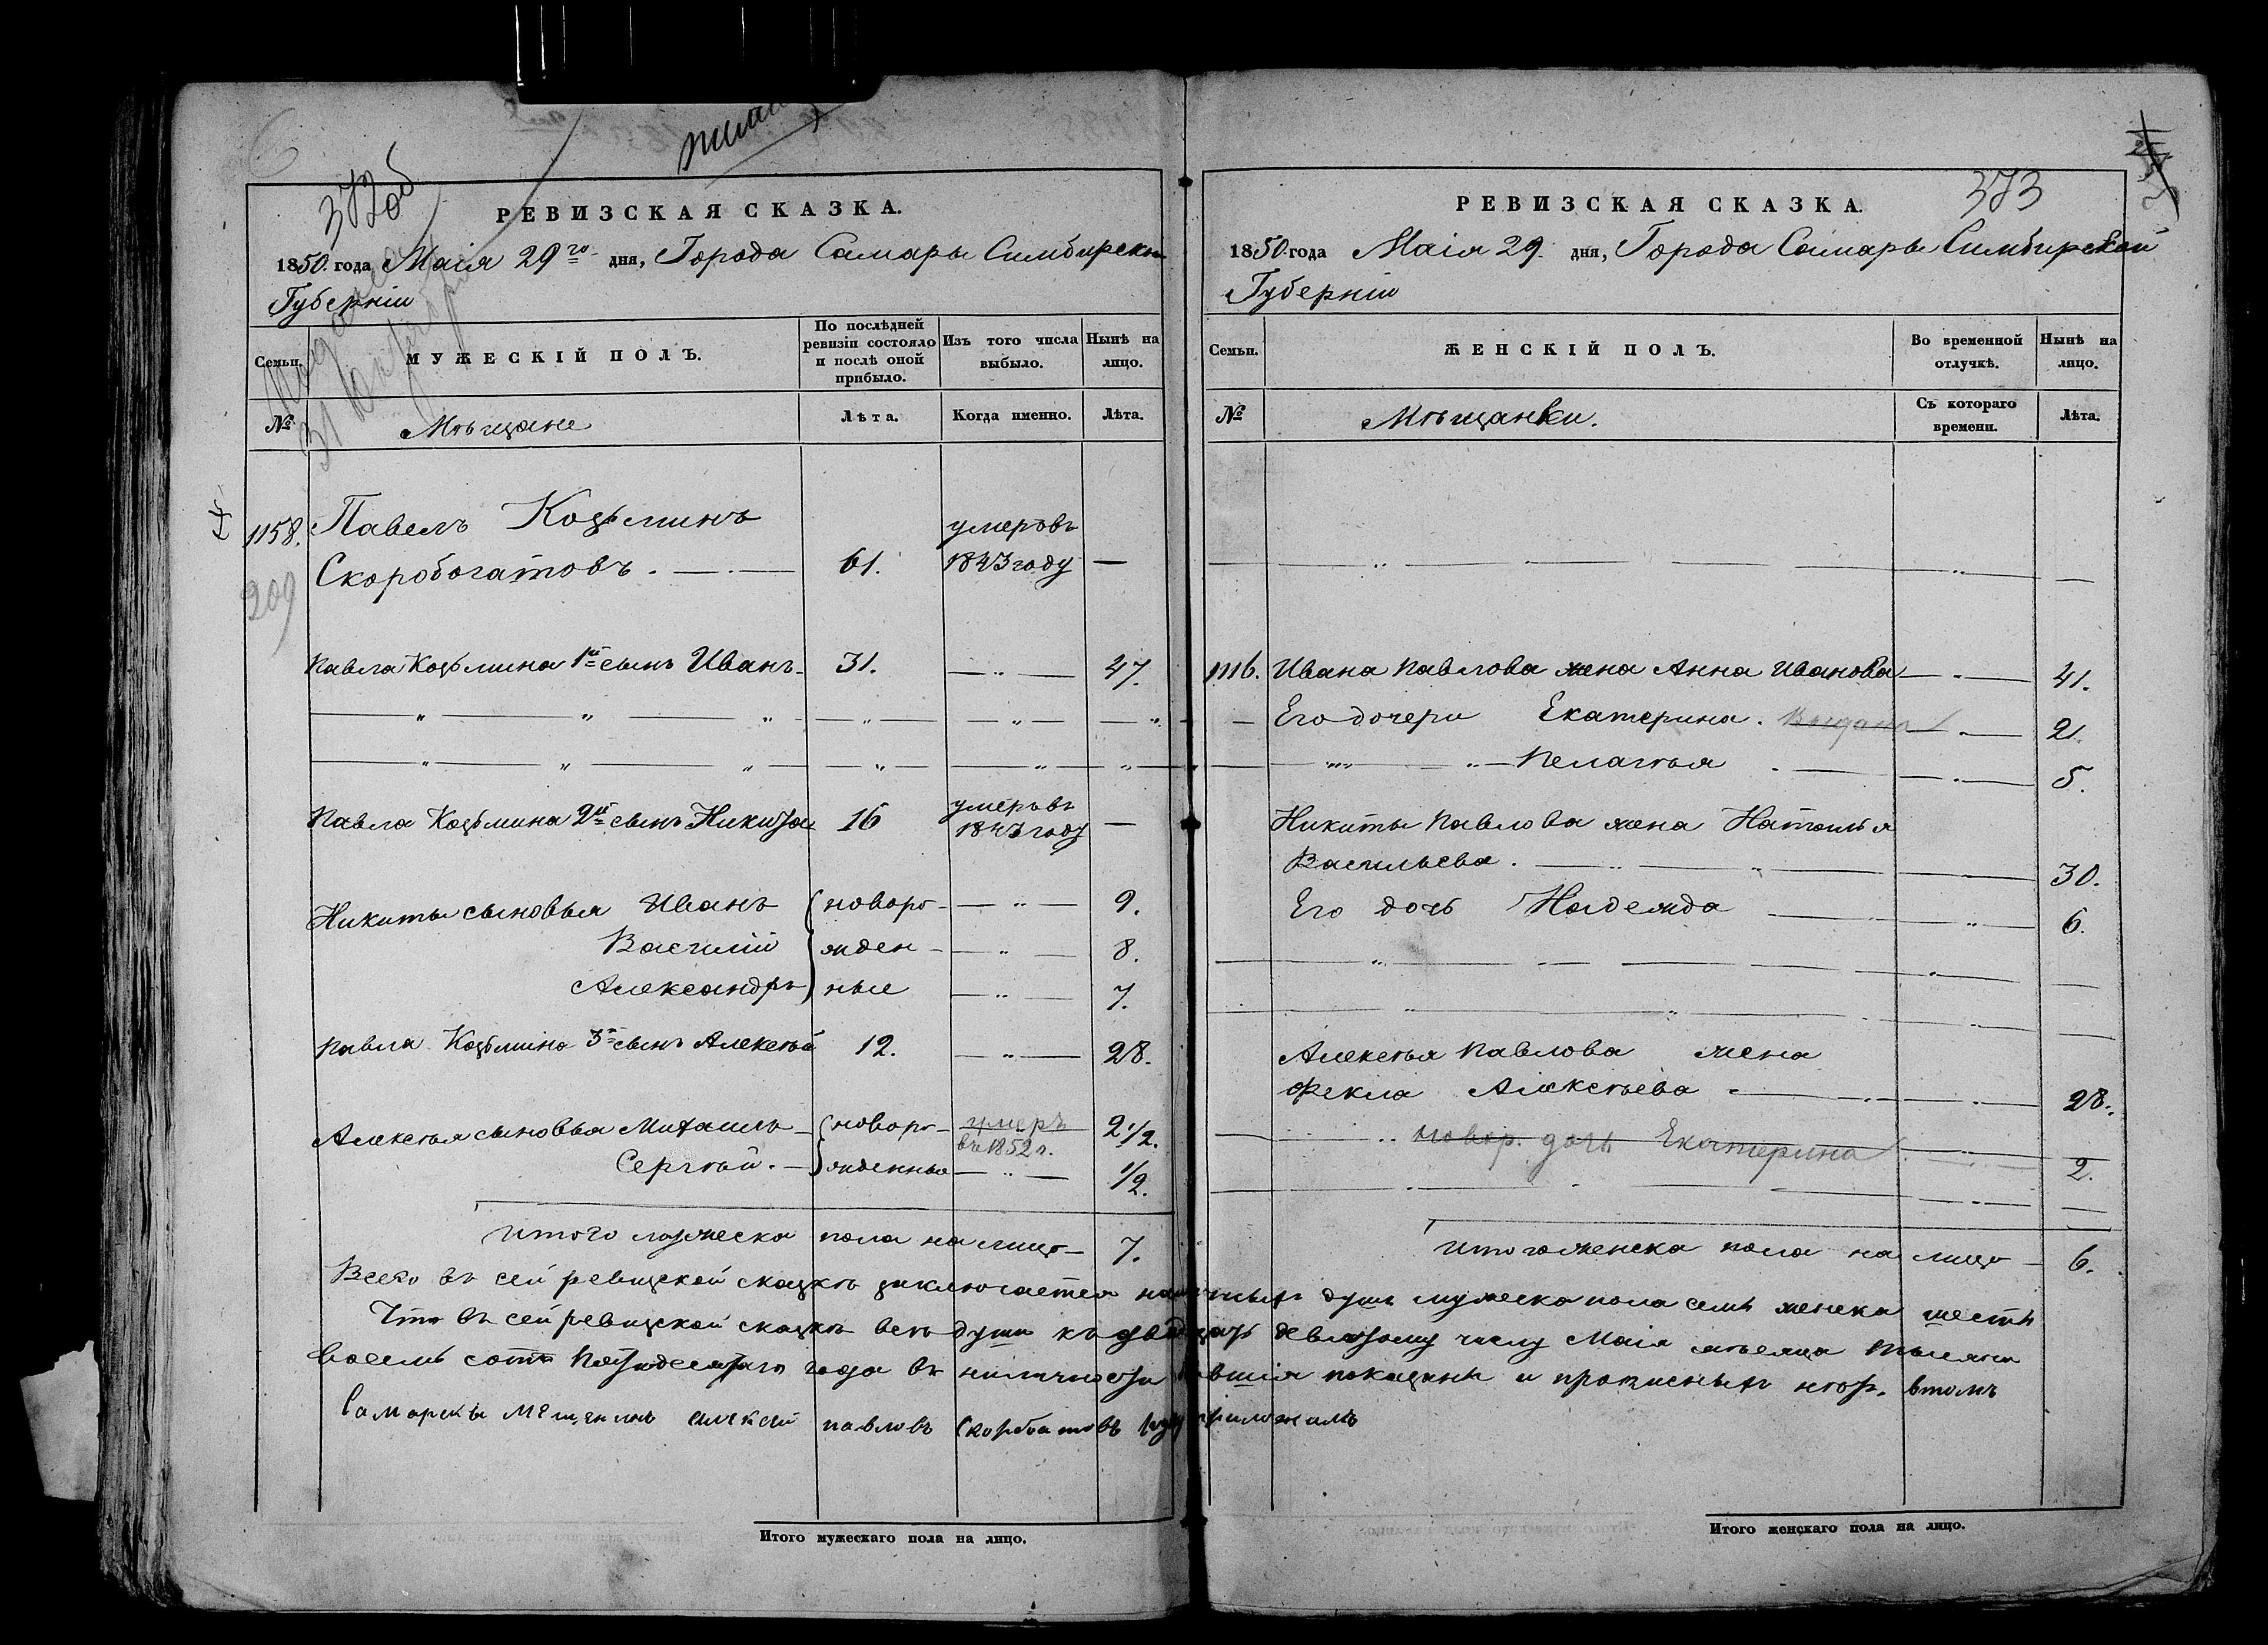 372об
РЕВИЗСКАЯ СКАЗКА.
1850 года Маія 29го дня, Города Самары Симбирской
Губерніи
Семьи.
МУЖЕСКІЙ ПОЛЪ.
По послѣдней ревизіи состояло и послѣ оной прибыло.
Изъ того числа выбыло.
Нынѣ на лицо.
№
Мѣщане
Лѣта.
Когда именно.
Лѣта.
1158. Павелъ Козьминъ умеръ въ
Скоробогатовъ. 61. 1843 году —
209
Павла Козьмина 1й сынъ Иванъ 31. — 47.
Павла Козьмина 2й сынъ Никита 16 умеръ въ —
году
Никиты сыновья Иванъ (новоро- 9.
Василій жден- 8.
Александръ ные 7.
Павла Козьмина 3й сынъ Алексѣй 12. — 28.
Алексѣя сыновья Михаилъ (новоро- умеръ въ 1852 г. 2 1/2.
Сергѣй. жденные 1/2.
Итого мужеска пола на лицо 7.
Итого мужескаго пола на лицо.
373
РЕВИЗСКАЯ СКАЗКА.
1850 года Маія 29. дня, Города Самары Симбирской
Губерніи
Семьи.
ЖЕНСКІЙ ПОЛЪ.
Во временной отлучкѣ.
Нынѣ на лицо.
№
Мѣщанки.
Съ котораго времени.
Лѣта.
1116. Ивана Павлова жена Анна Иванова 41.
Его дочери Екатерина. 21.
Пелагѣя 5.
Никиты Павлова жена Наталья
Васильева. 30.
Его дочь Надежда 6.
Алексѣя Павлова жена
Фекла Алексѣева 28.
новор. дочь Екатерина 2.
Итого женска пола на лицо 6.
Всего въ сей ревизской сказкѣ заключается наличныхъ душъ мужеска пола семь женска шесть
Что въ сей ревизской сказкѣ всѣ души къ двадцать девятому числу Маія мѣсяца тысяча
восемь сотъ пятидесятаго года въ наличности бывшія показаны и прописныхъ нѣтъ. втомъ
Самарскъи мещенинъ алексей павловъ Скорбагатовъ руку приложилъ
Итого женскаго пола на лицо.